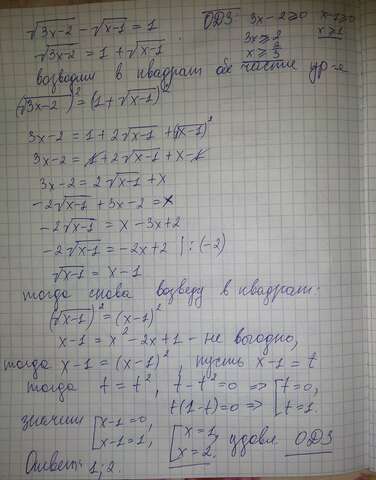 √3x-2 - √x-1 = 1 ОДЗ 3x-2≥0 x-1≥0
√3x-2 = 1 + √x-1 3x≥2 x≥1
x≥2/3
возводим в квадрат обе части ур-я
(√3x-2)² = (1+√x-1)²
3x-2 = 1+2√x-1 + (√x-1)²
3x-2 = 1+2√x-1 + x-1
3x-2 = 2√x-1 + x
-2√x-1 + 3x-2 = x
-2√x-1 = x-3x+2
-2√x-1 = -2x+2 | :(-2)
√x-1 = x-1
тогда снова возведу в квадрат:
(√x-1)² = (x-1)²
x-1 = x²-2x+1 - не выгодно,
тогда x-1 = (x-1)², пусть x-1 = t
тогда t = t², t-t²=0 => [t=0,
t(1-t)=0 => [t=1.
значит [x-1=0, [x=1, удовл. ОДЗ
[x-1=1, [x=2.
Ответ: 1; 2.